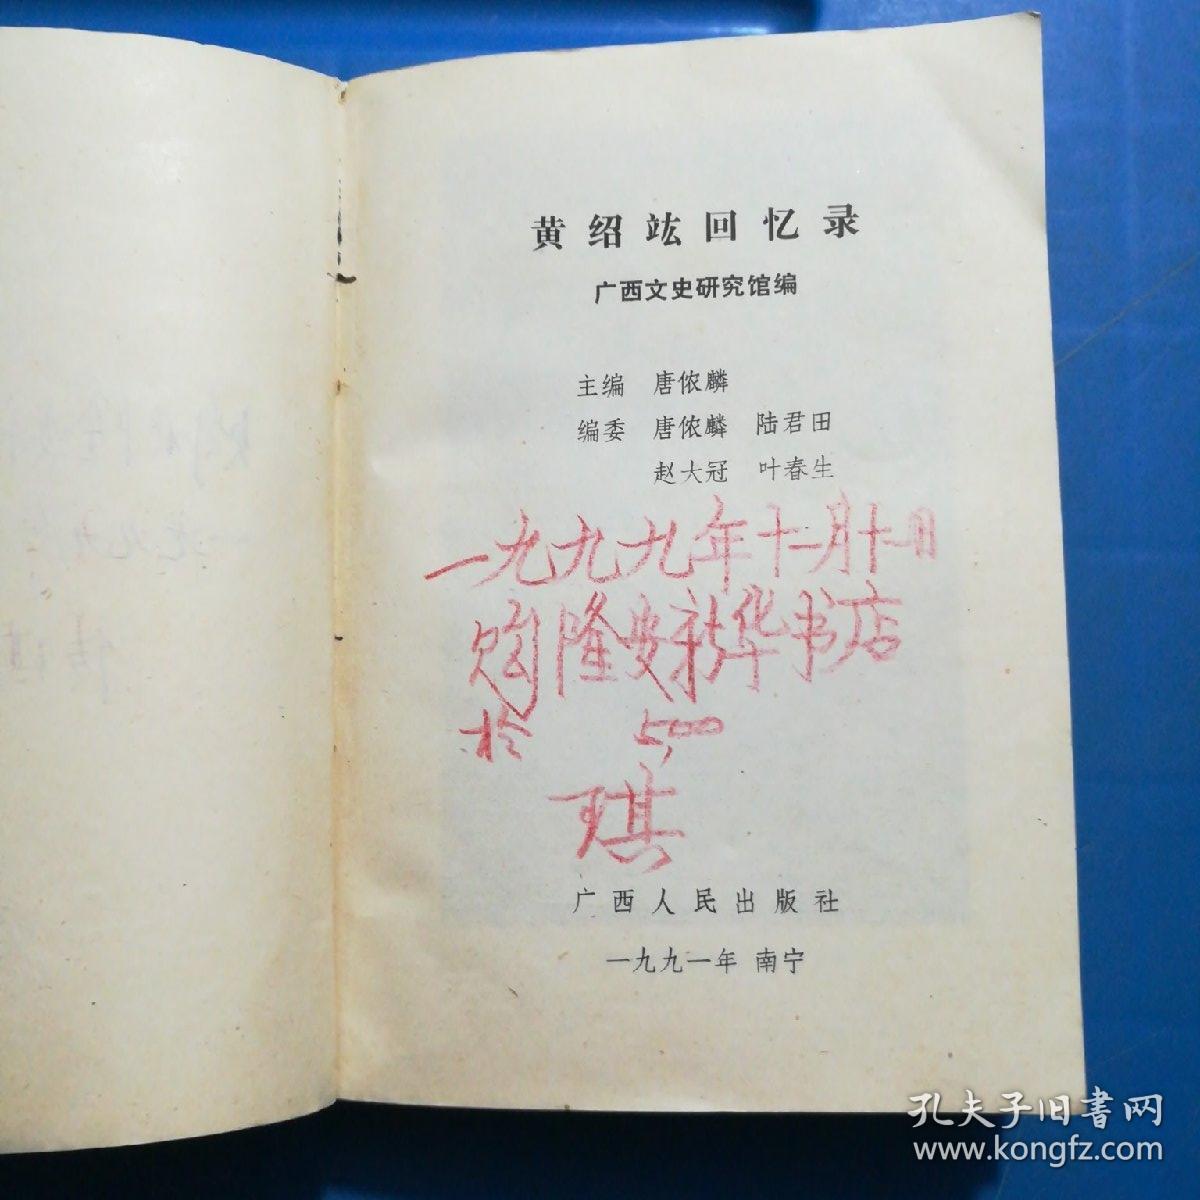 黄绍竑回忆录
广西文史研究馆编
主编 唐侬麟
编委 唐侬麟 陆君田
赵大冠 叶春生
一九九九年十一月十一日
购隆安新华书店
於 5,00
琪
广西人民出版社
一九九一年 南宁
孔夫子旧书网
www.kongfz.com